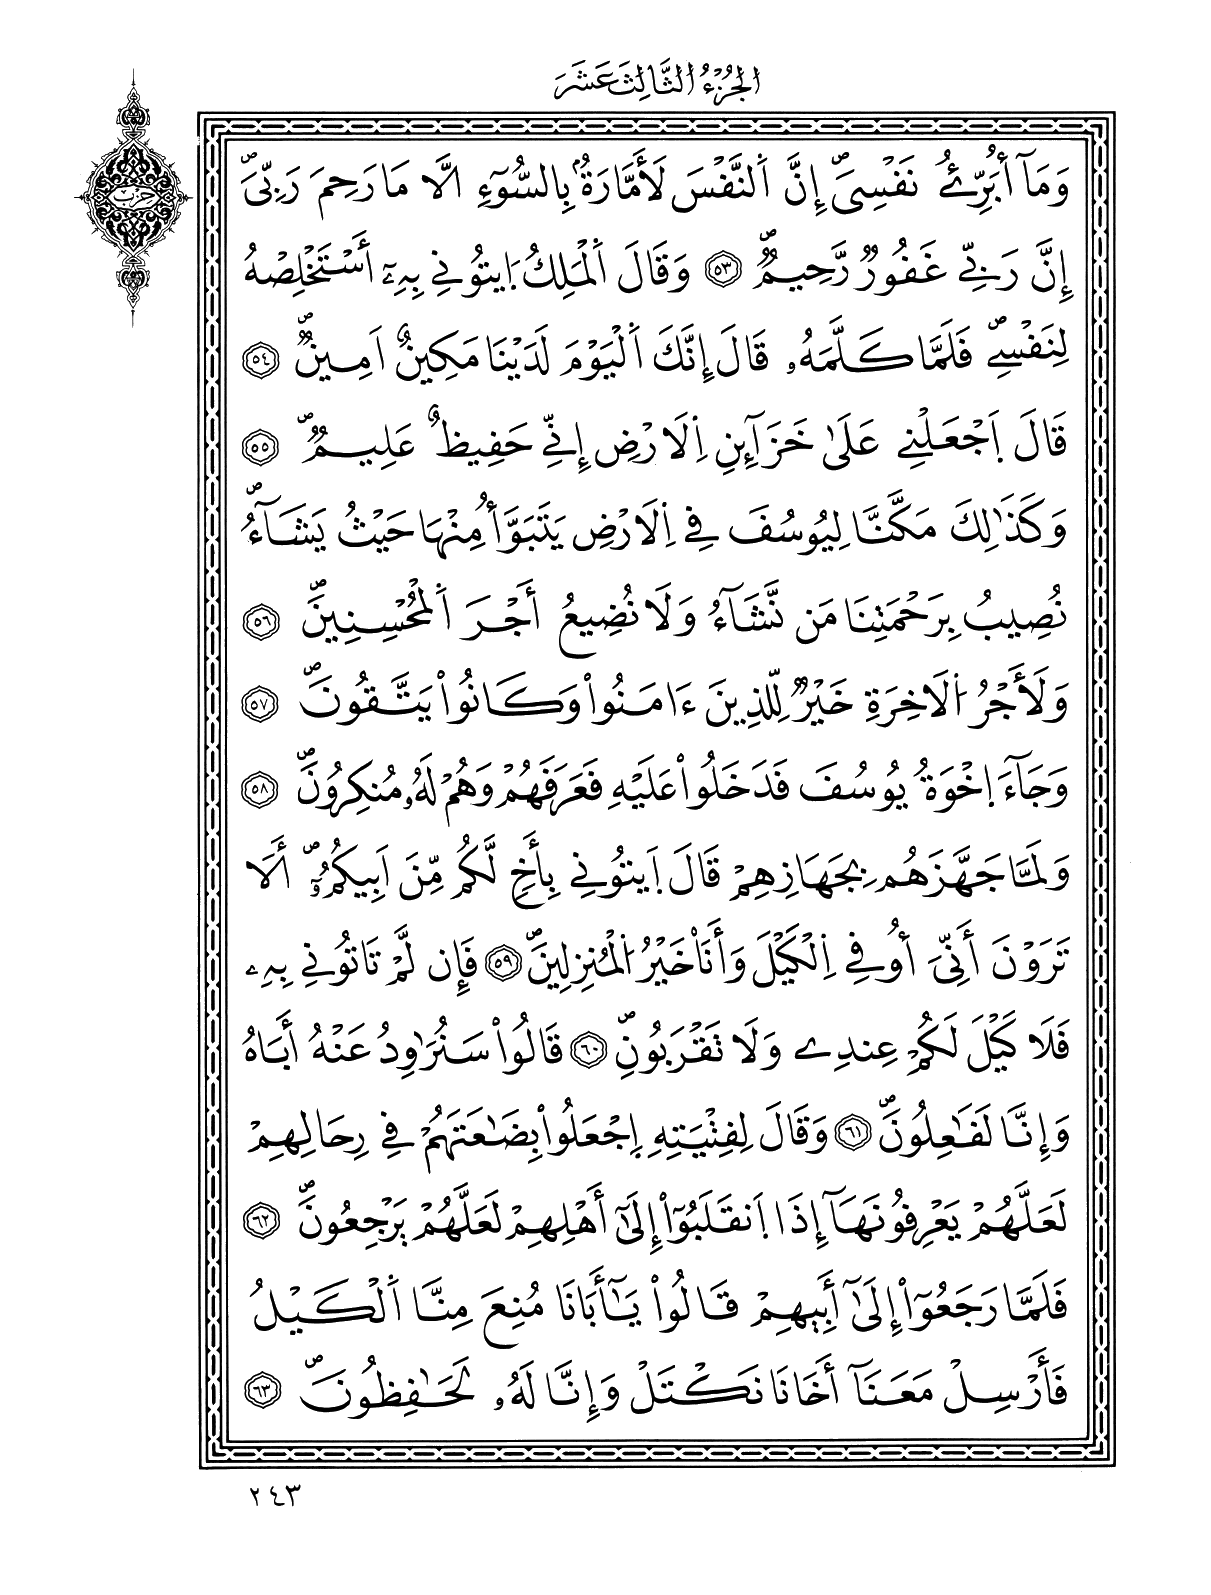 الجزء الثالث عشر
حزب
وَمَآ أُبَرِّئُ نَفْسِيَ إِنَّ اَ۬لنَّفْسَ لَأَمَّارَةُۢ بِالسُّوٓءِ الَّا مَا رَحِمَ رَبِّيَ
إِنَّ رَبِّي غَفُورٞ رَّحِيمٞ ٥٣ وَقَالَ اَ۬لْمَلِكُ اُ۪يتُونِي بِهِۦٓ أَسْتَخْلِصْهُ
لِنَفْسِي فَلَمَّا كَلَّمَهُۥ قَالَ إِنَّكَ اَ۬لْيَوْمَ لَدَيْنَا مَكِينٌ اَمِينٞ ٥٤
قَالَ اَ۪جْعَلْنِي عَلَىٰ خَزَآئِنِ اِ۬لَارْضِ إِنِّي حَفِيظٌ عَلِيمٞ ٥٥
وَكَذَٰلِكَ مَكَّنَّا لِيُوسُفَ فِي اِ۬لَارْضِ يَتَبَوَّأُ مِنْهَا حَيْثُ يَشَآءُ
نُصِيبُ بِرَحْمَتِنَا مَن نَّشَآءُ وَلَا نُضِيعُ أَجْرَ اَ۬لْمُحْسِنِينَ ٥٦
وَلَأَجْرُ اُ۬لَاخِرَةِ خَيْرٞ لِّلذِينَ ءَامَنُواْ وَكَانُواْ يَتَّقُونَ ٥٧
وَجَآءَ اِخْوَةُ يُوسُفَ فَدَخَلُواْ عَلَيْهِ فَعَرَفَهُمْ وَهُمْ لَهُۥ مُنكِرُونَ ٥٨
وَلَمَّا جَهَّزَهُم بِجَهَازِهِمْ قَالَ اَ۪يتُونِي بِأَخٖ لَّكُم مِّنَ اَبِيكُمُۥٓ أَلَا
تَرَوْنَ أَنِّيَ أُوفِي اِ۬لْكَيْلَ وَأَنَا خَيْرُ اُ۬لْمُنزِلِينَ ٥٩ فَإِن لَّمْ تَاتُونِي بِهِۦ
فَلَا كَيْلَ لَكُمْ عِندِي وَلَا تَقْرَبُونِ ٦٠ قَالُواْ سَنُرَٰوِدُ عَنْهُ أَبَاهُ
وَإِنَّا لَفَٰعِلُونَ ٦١ وَقَالَ لِفِتْيَتِهِ اِ۪جْعَلُواْ بِضَٰعَتَهُمْ فِي رِحَالِهِمْ
لَعَلَّهُمْ يَعْرِفُونَهَآ إِذَا اَ۪نقَلَبُوٓاْ إِلَىٰٓ أَهْلِهِمْ لَعَلَّهُمْ يَرْجِعُونَ ٦٢
فَلَمَّا رَجَعُوٓاْ إِلَىٰٓ أَبِيهِمْ قَالُواْ يَٰٓأَبَانَا مُنِعَ مِنَّا اَ۬لْكَيْلُ
فَأَرْسِلْ مَعَنَآ أَخَانَا نَكْتَلْ وَإِنَّا لَهُۥ لَحَٰفِظُونَ ٦٣
٢٤٣